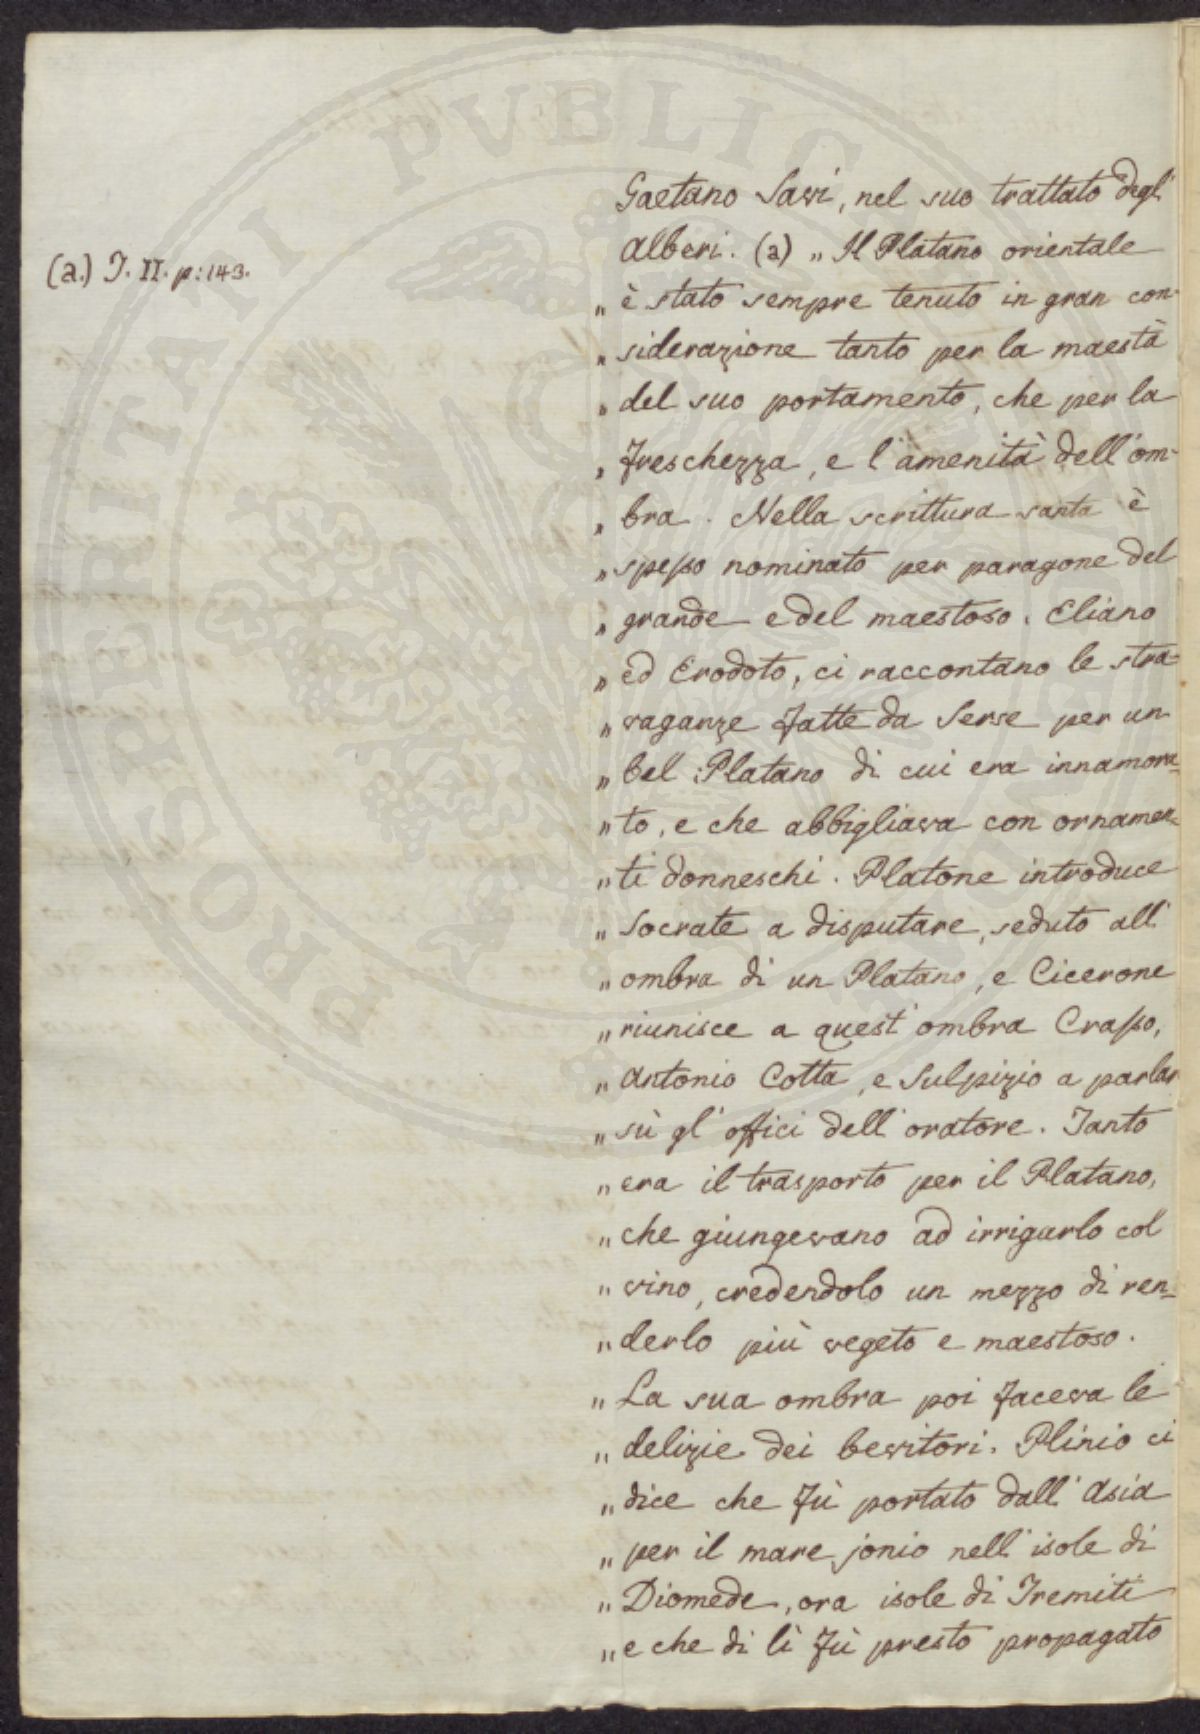 PROSPERITATI PVBLICAE
Gaetano Savi, nel suo trattato degl'
Alberi. (a) „ Il Platano orientale
(a.) T. II. p: 143.
„ è stato sempre tenuto in gran con-
„ siderazione tanto per la maestà
„ del suo portamento, che per la
„ freschezza, e l'amenità dell'om-
„ bra. Nella scrittura santa è
„ spesso nominato per paragone del
„ grande e del maestoso. Eliano
„ ed Erodoto, ci raccontano le stra=
„ vaganze fatte da Serse per un
„ bel Platano di cui era innamora=
„ to, e che abbigliava con ornamen=
„ ti donneschi. Platone introduce
„ Socrate a disputare, seduto all'
„ ombra di un Platano, e Cicerone
„ riunisce a quest'ombra Crasso,
„ Antonio Cotta, e Sulpizio a parlar
„ sù gl'offici dell'oratore. Tanto
„ era il trasporto per il Platano,
„ che giungevano ad irrigarlo col
„ vino, credendolo un mezzo di ren=
„ derlo più vegeto e maestoso.
„ La sua ombra poi faceva le
„ delizie dei bevitori. Plinio ci
„ dice che fù portato dall'Asia
„ per il mare jonio nell'isole di
„ Diomede, ora isole di Tremiti
„ e che di li fù presto propagato